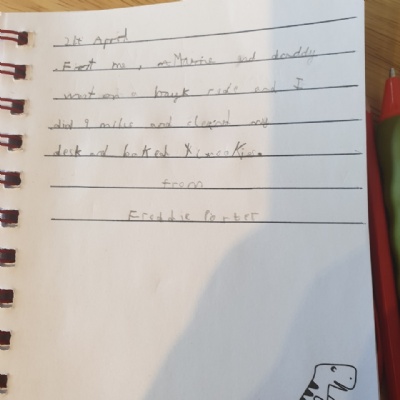 21t April
First me, and daddy
went on a bayk ride and I
did 9 miles and cleaned my
desk and baked
from
Freddie Porter